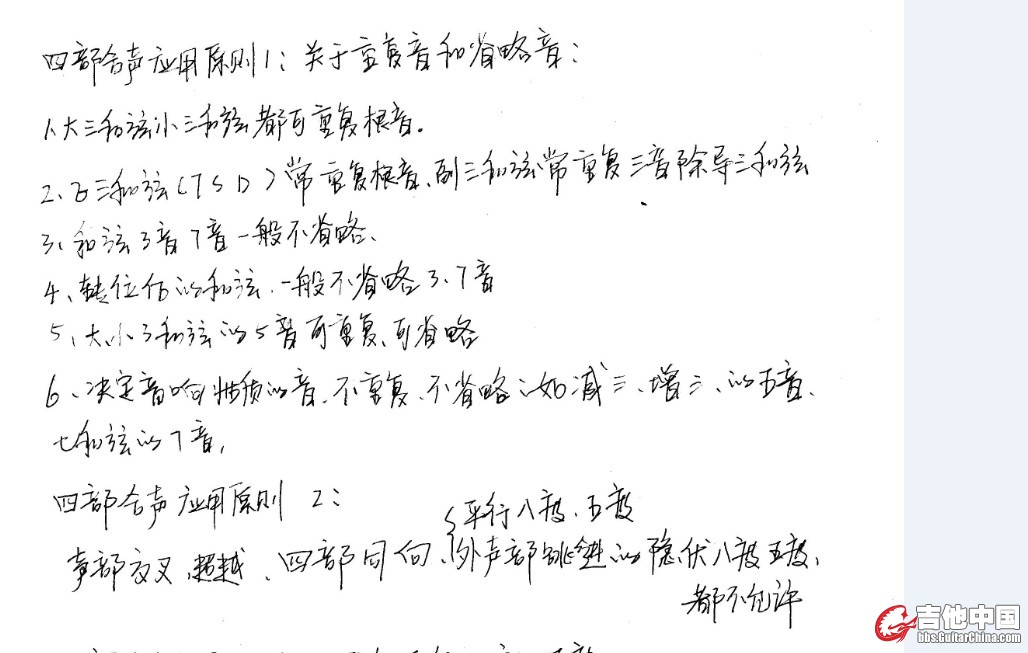 四部合声应用原则1：关于重复音和省略音：
1、大三和弦小三和弦都可重复根音。
2、正三和弦（T S D）常重复根音、副三和弦常重复三音除导三和弦
3、和弦3音7音一般不省略、
4、转位后的和弦、一般不省略3、7音
5、大、小3和弦的5音可重复、可省略
6、决定音响性质的音、不重复、不省略：如减三、增三、的五音、
七和弦的7音，
四部合声应用原则 2：
平行八度、五度
声部交叉、超越、四部同向、外声部跳进的隐伏八度五度、
都不允许
吉他中国
bbs.GuitarChina.com